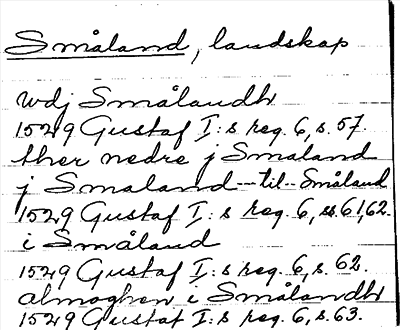 Småland, landskap
wdj Smålandh
1529 Gustaf I:s reg. 6, s. 57.
ther nedre j Smaland
j Smaland---til--Småland
1529 Gustaf I:s reg. 6, ss. 61, 62.
i Småland
1529 Gustaf I:s reg. 6, s. 62.
almoghen i Smålandh
1529 Gustaf I:s reg. 6, s. 63.